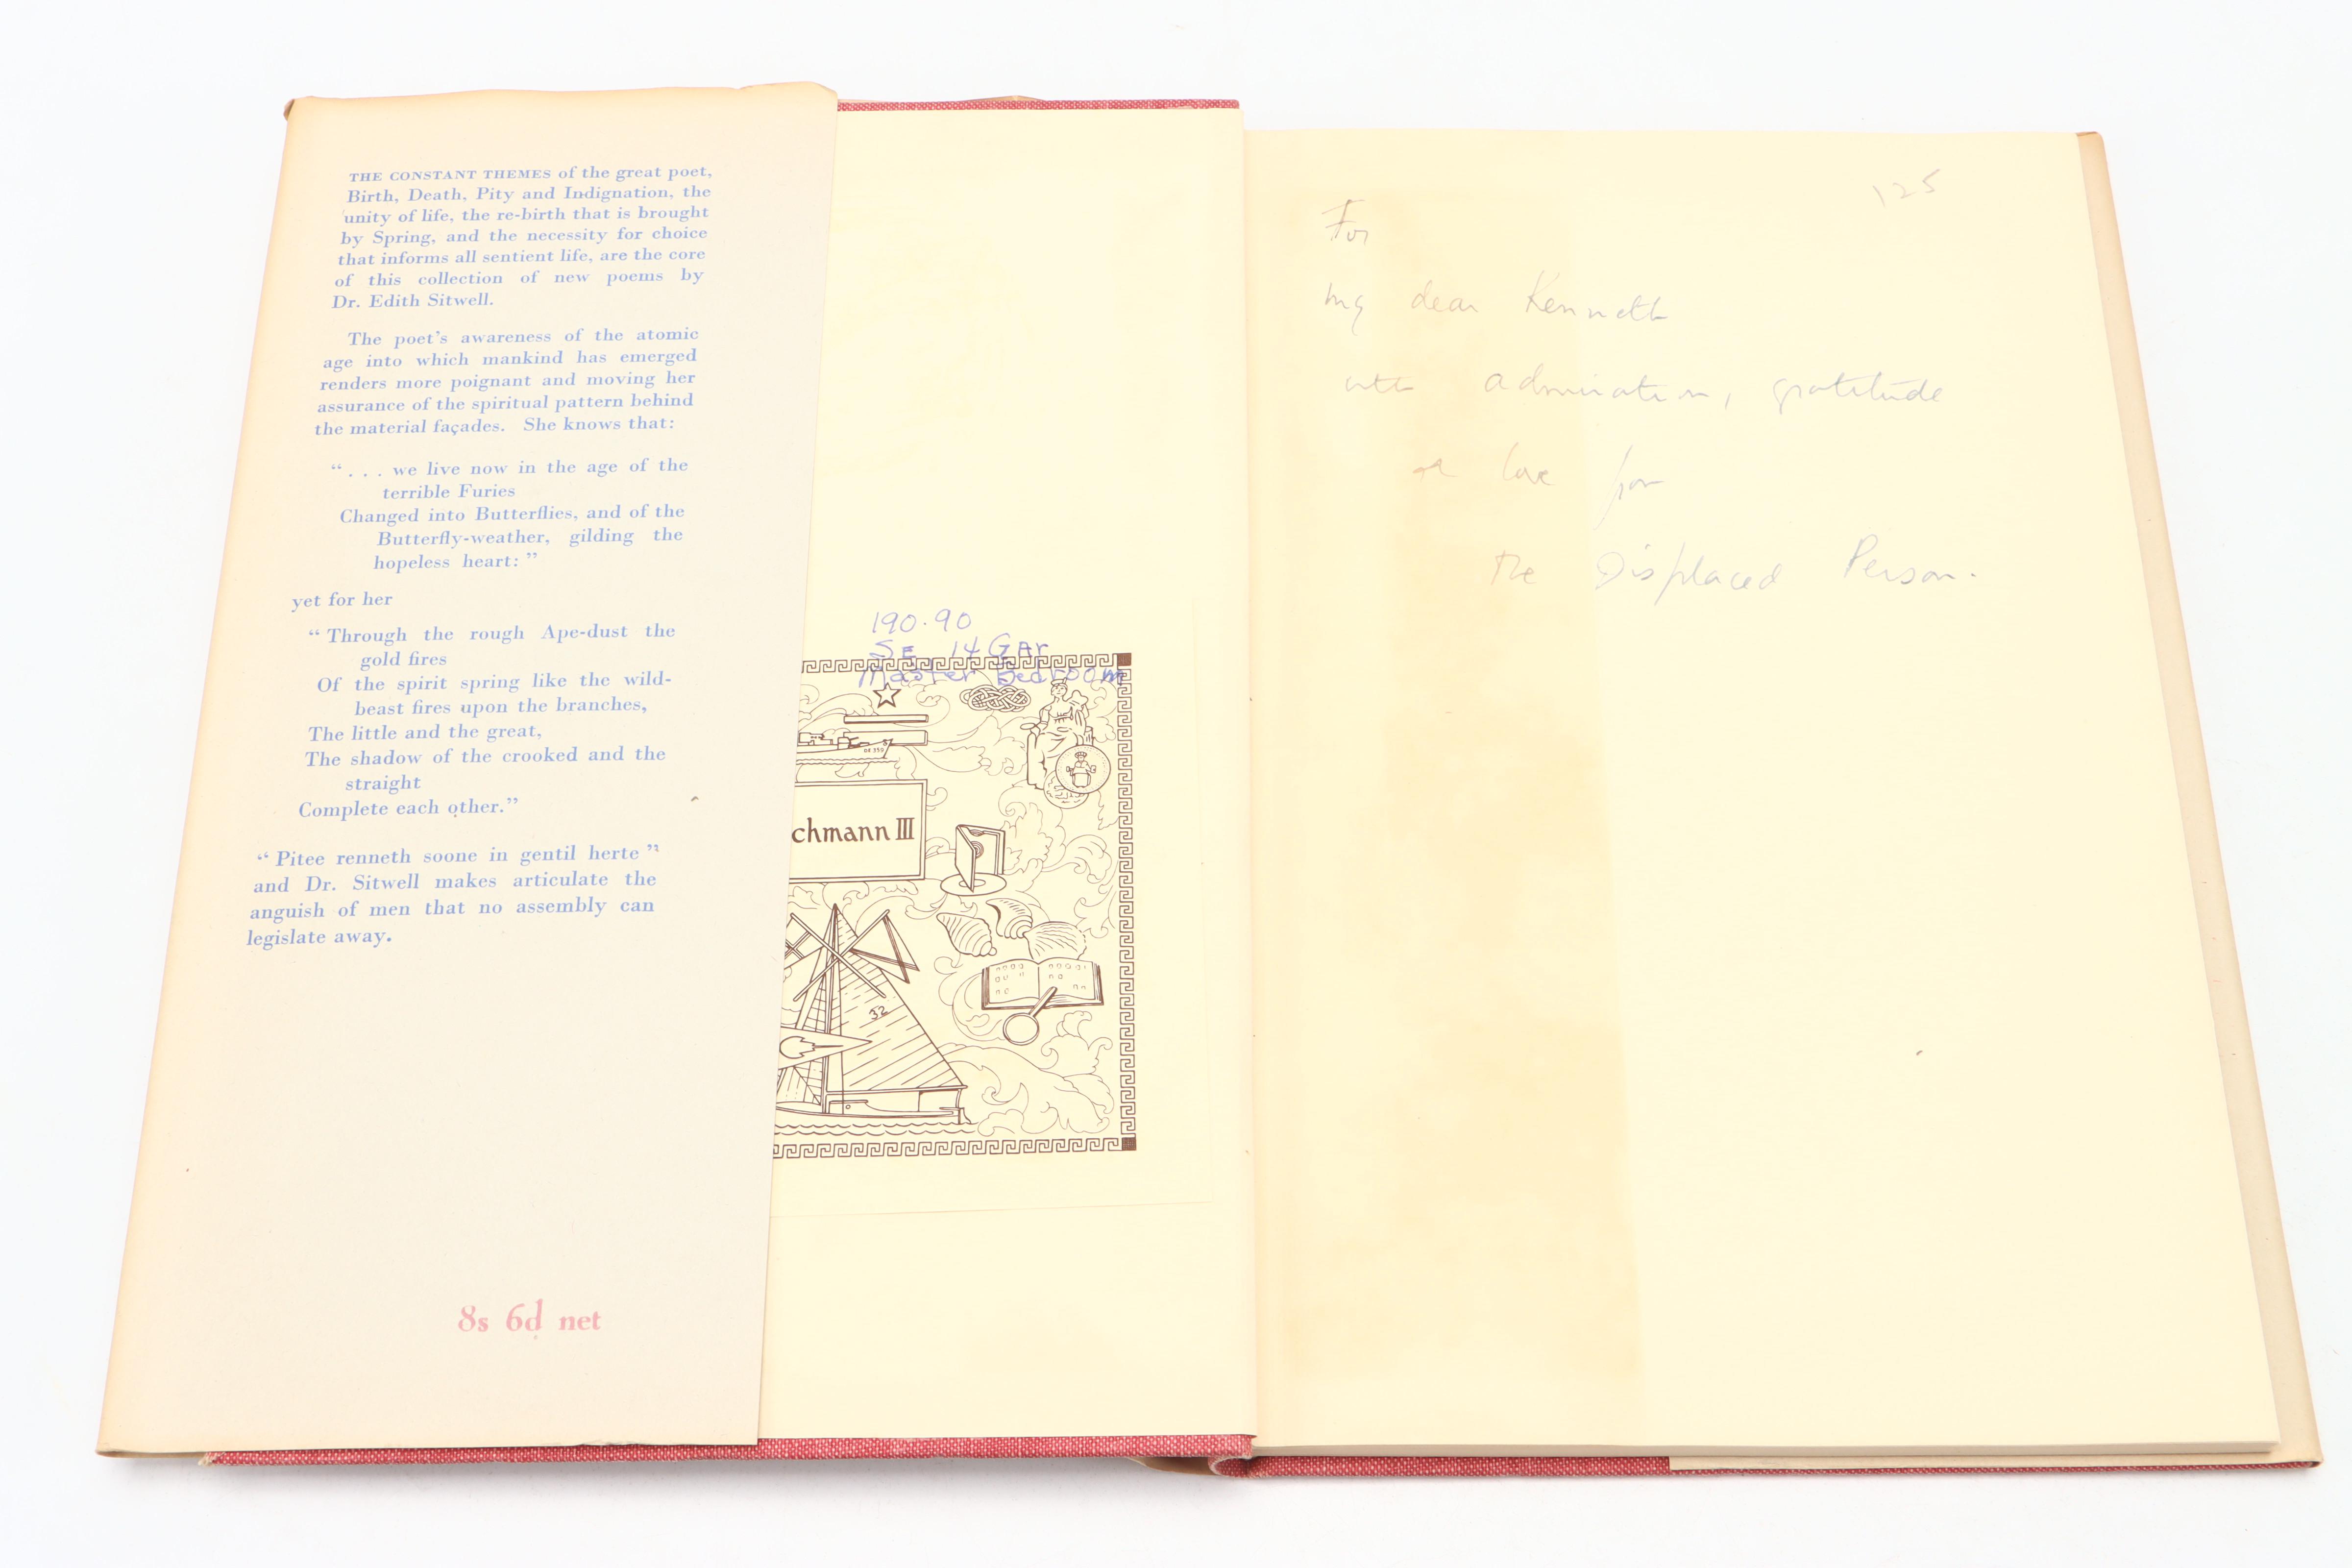 THE CONSTANT THEMES of the great poet,
Birth, Death, Pity and Indignation, the
unity of life, the re-birth that is brought
by Spring, and the necessity for choice
that informs all sentient life, are the core
of this collection of new poems by
Dr. Edith Sitwell.
The poet's awareness of the atomic
age into which mankind has emerged
renders more poignant and moving her
assurance of the spiritual pattern behind
the material façades. She knows that:
“. . . we live now in the age of the
terrible Furies
Changed into Butterflies, and of the
Butterfly-weather, gilding the
hopeless heart:”
yet for her
“Through the rough Ape-dust the
gold fires
Of the spirit spring like the wild-
beast fires upon the branches,
The little and the great,
The shadow of the crooked and the
straight
Complete each other.”
“Pitee renneth soone in gentil herte”
and Dr. Sitwell makes articulate the
anguish of men that no assembly can
legislate away.
8s 6d net
190.90
SE 14 Gar
Master Bedroom
DE 339
chmann III
32
125
For
my dear Kenneth
with admiration, gratitude
love from
the Displaced Person.